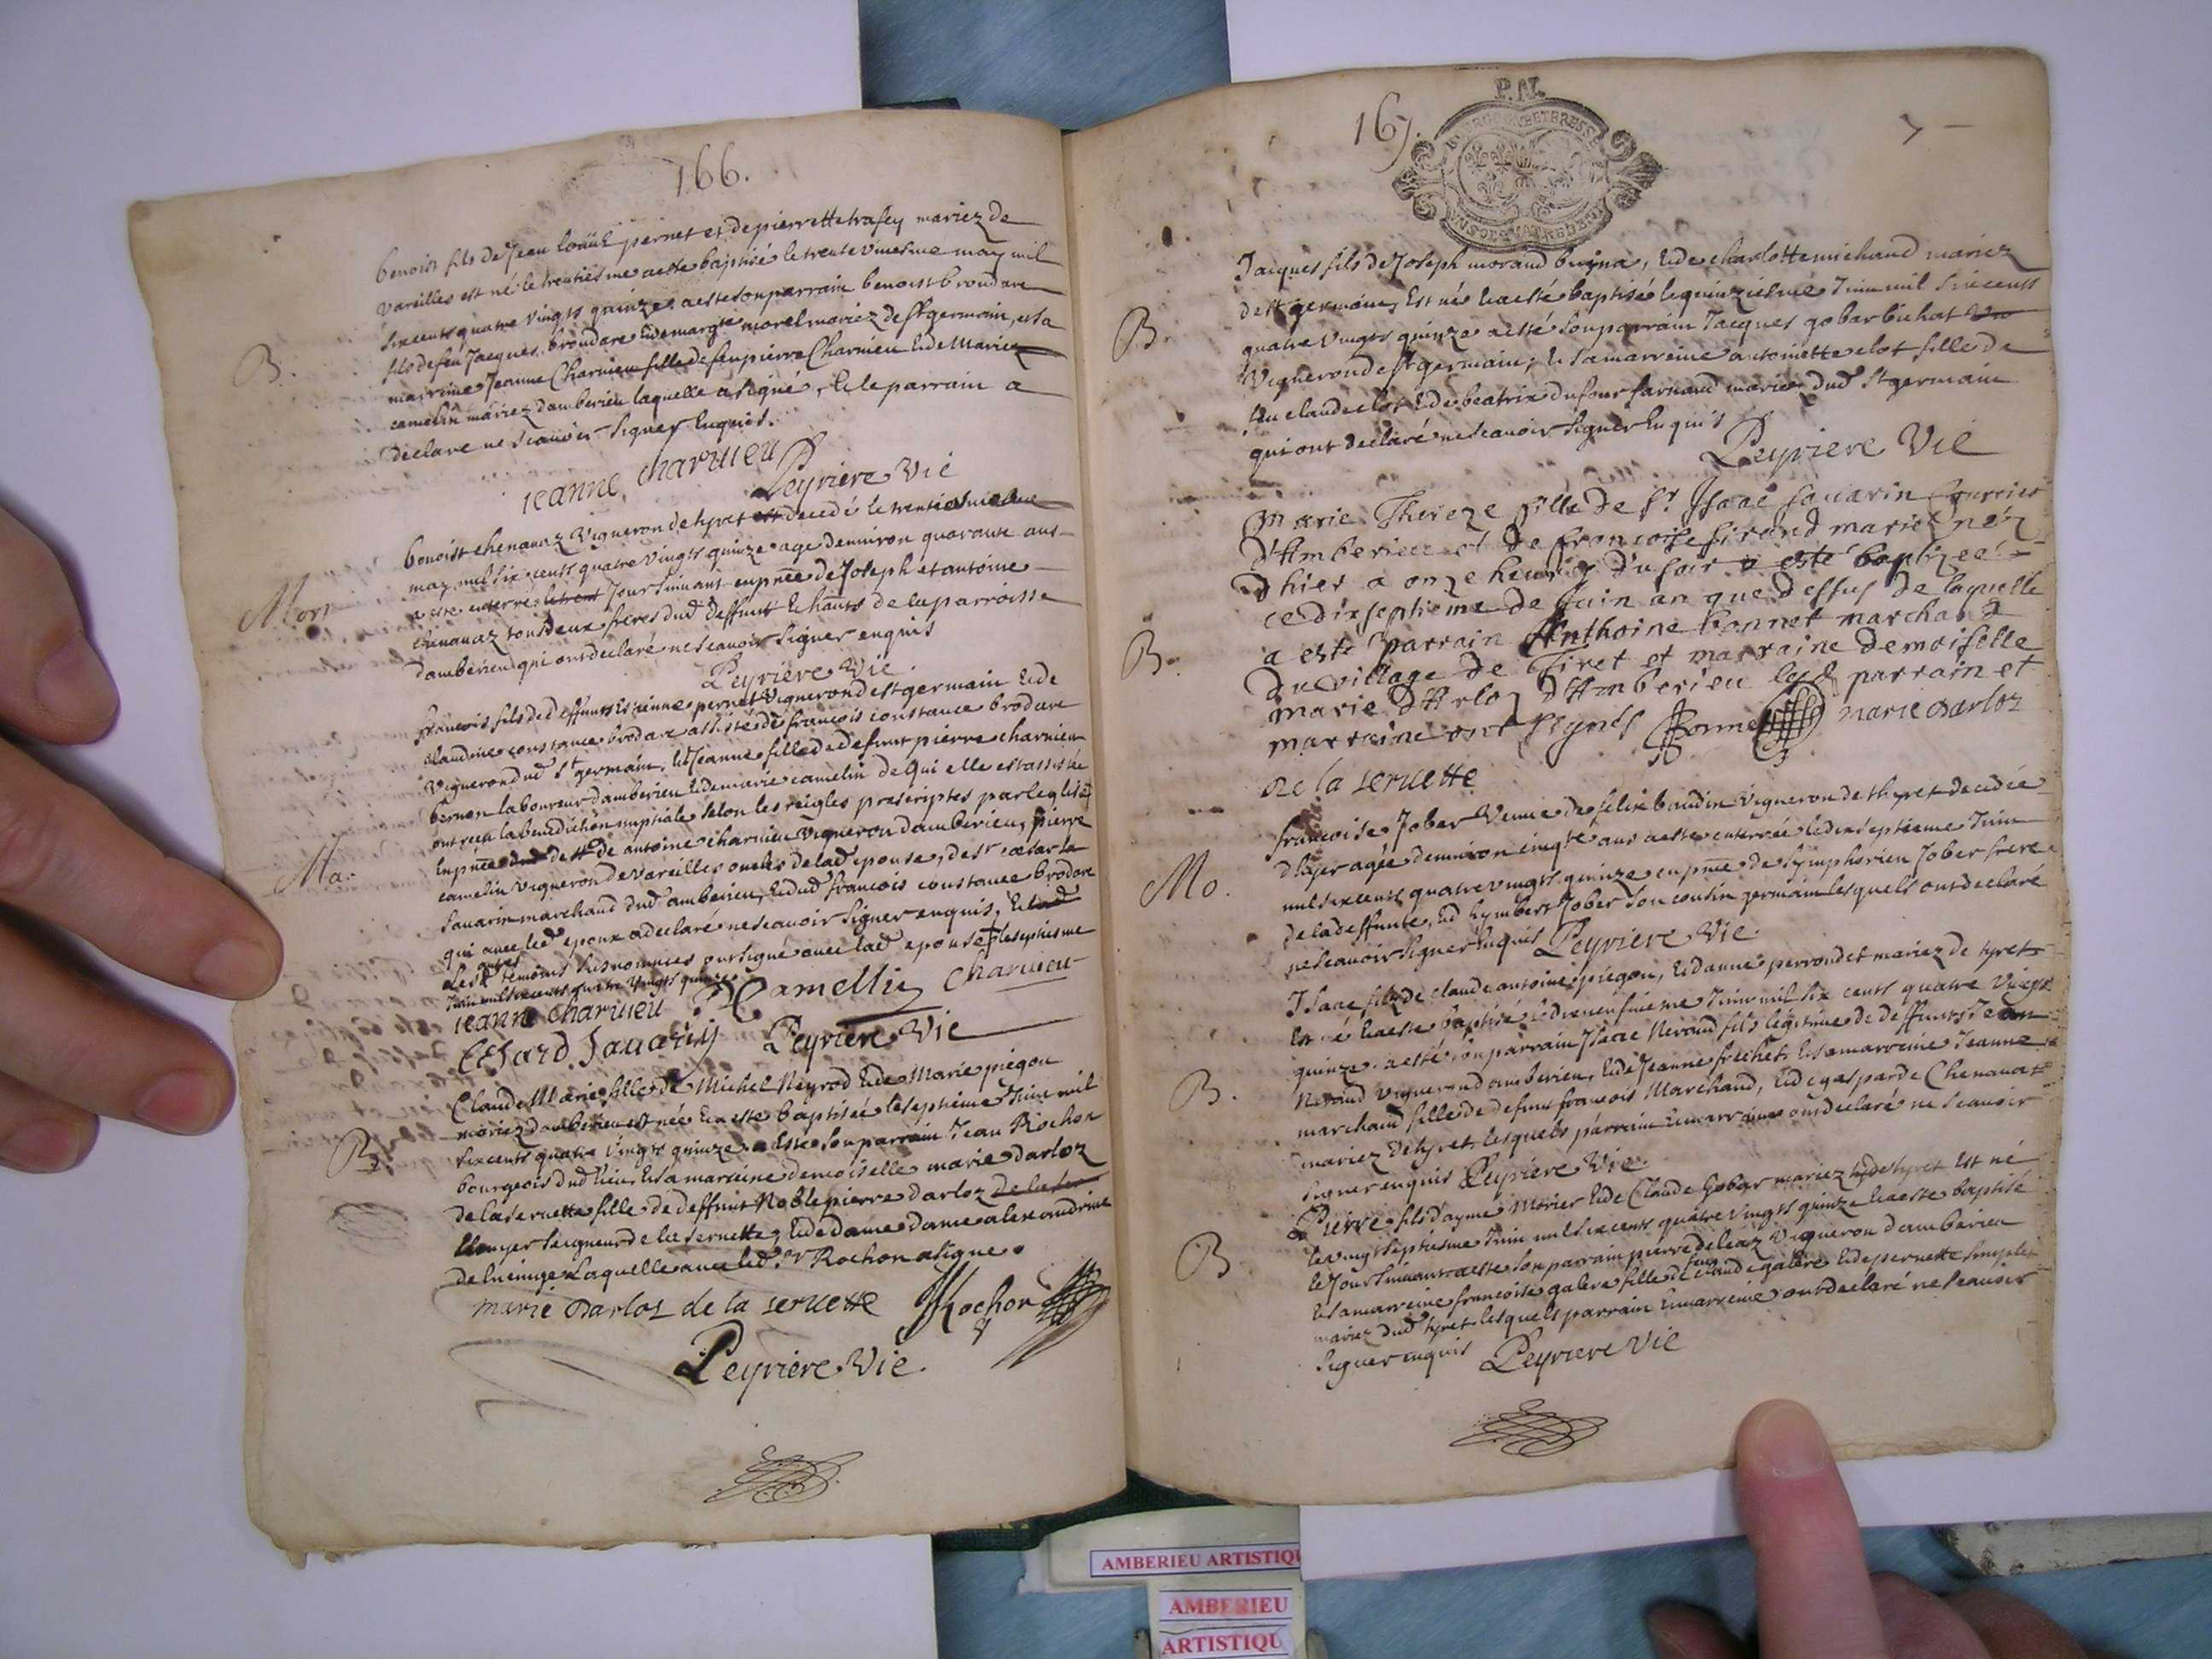 166.
benoist fils de Jean loüis pernet et de pierrette trafey mariez de
vareilles est né le trentiesme a esté baptisé le trente uniesme may mil
B.
six cents quatre vingts quinze a esté son parrain benoist brondare
fils de feu Jacques brondare et de margte morel mariez de st germain, et sa
marreine Jeanne Charuieu fille de feu pierre Charuieu et de Marie
camelin mariez damberieu laquelle a signé, et le parrain a
declare ne scauoir signer enquis.
ieanne charuieu
Peyriere Vic
benoist chenauaz Vigneron de tyret est decedé le trentiesme
may mil six cents quatre vingts quinze age denuiron quarante ans
Mort
a este enterré le trent Jour suiuant en pnce de Joseph et antoine
chenauaz tous deux freres dud deffunt de la parroisse
damberieu qui ont declaré ne scauoir signer enquis
Peyriere Vic
francois fils de deffunts estienne pernet Vigneron de st germain et de
claudine constance brodare assisté de francois constance brodare
Vigneron dud st germain, et Jeanne fille de defunt pierre charuieu
laboureur damberieu et de marie camelin de qui elle est assistée
ont receu la benediction nuptiale selon les reigles prescriptes par leglise
Ma.
en pnce de antoine charuieu Vigneron damberieu, pierre
camelin Vigneron de vareilles oncles de lad epouse, de sr cœsar la
sauarin marchand dud amberieu, et dud francois constance brodare
qui auec led epoux a declaré ne scauoir signer enquis, et
les autres temoins susnommés ont signé auec lad epouse le septiesme
Juin mil six cents quatre vingts quinze
ieanne charuieu P Camellin Charuieu
Cesard Sauarin Peyriere Vic
Claude Marie fille de Michel Neyrod et de Marie piegon
mariez damberieu est née et a esté baptisée le septieme Juin mil
B.
six cents quatre Vingts quinze a esté son parrain Jean Rochon
bourgeois dud lieu, et sa marreine demoiselle marie darloz
de la seruette fille de deffunt Noble pierre darloz de la ser
Ecuyer Seigneur de la seruette, et de dame dame alexandrine
de lueinge laquelle auec led sr Rochon a signe.
marie darloz de la seruette Rochon
Peyriere Vic.
167.
P.N.
7
Jacques fils de Joseph morand bugna, et de charlotte michaud mariez
de st germain, Est né et a esté baptisé le quinziesme Juin mil six cents
B.
quatre vingts quinze a esté son parrain Jacques gobar bichat
Vigneron de st germain; et sa marreine antoinette clot fille de
feu claude clot et de beatrix dufour farnaud mariez dud St germain
qui ont declaré ne scauoir signer enquis
Peyriere Vic
Marie Thereze fille de sr Isaac sauarin
d'Amberieu et de francoise sirand mariez née
dhier a onze heures du soir a esté baptizée
ce dixseptieme de Juin an que dessus de laquelle
B.
a esté parrain Anthoine bonnet marchand
du village de Tiret et marraine demoiselle
marie dArloz d'Amberieu lesd parrain et
marraine ont signés Bonnet marie darloz
de la seruette
francoise Jober Veuue de felix baudin vigneron de thyret decedée
dhier agée denuiron cinqte ans a esté enterrée le dixseptieme Juin
Mo.
mil six cents quatre vingts quinze en pnce de symphorien Jober frere
de lad deffunte, et d hymbert Jober son cousin germain lesquels ont declaré
ne scauoir signer enquis Peyriere Vic.
Isaac fils de claude antoine piegon, et d'anne perrondet mariez de tyret
est né et a esté baptisé le dixneufuieme Juin mil six cents quatre Vingts
quinze. a esté son parrain Isaac Neraud fils legitime de deffunts Jean
B.
Neraud Vigneron damberieu, et de Jeanne frechet et sa marreine Jeanne
marchand fille de defunt francois Marchand, et de gasparde Chenauat
mariez de tyret lesquels parrain et marraine ont declaré ne scauoir
signer enquis Peyriere Vic.
Pierre fils d'ayme Morier et de Claude Gobar mariez de tyret est né
le vingt septiesme Juin mil six cents quatre vingts quinze et a este baptisé
B
le Jour suiuant a esté son parrain pierre deleaz Vigneron damberieu
et sa marreine francoise galere fille de feu Claude galere et de pernette simplet
mariez dud tyret lesquels parrain et marreine ont declaré ne scauoir
signer enquis Peyriere Vic
AMBERIEU ARTISTIQU
AMBERIEU
ARTISTIQU